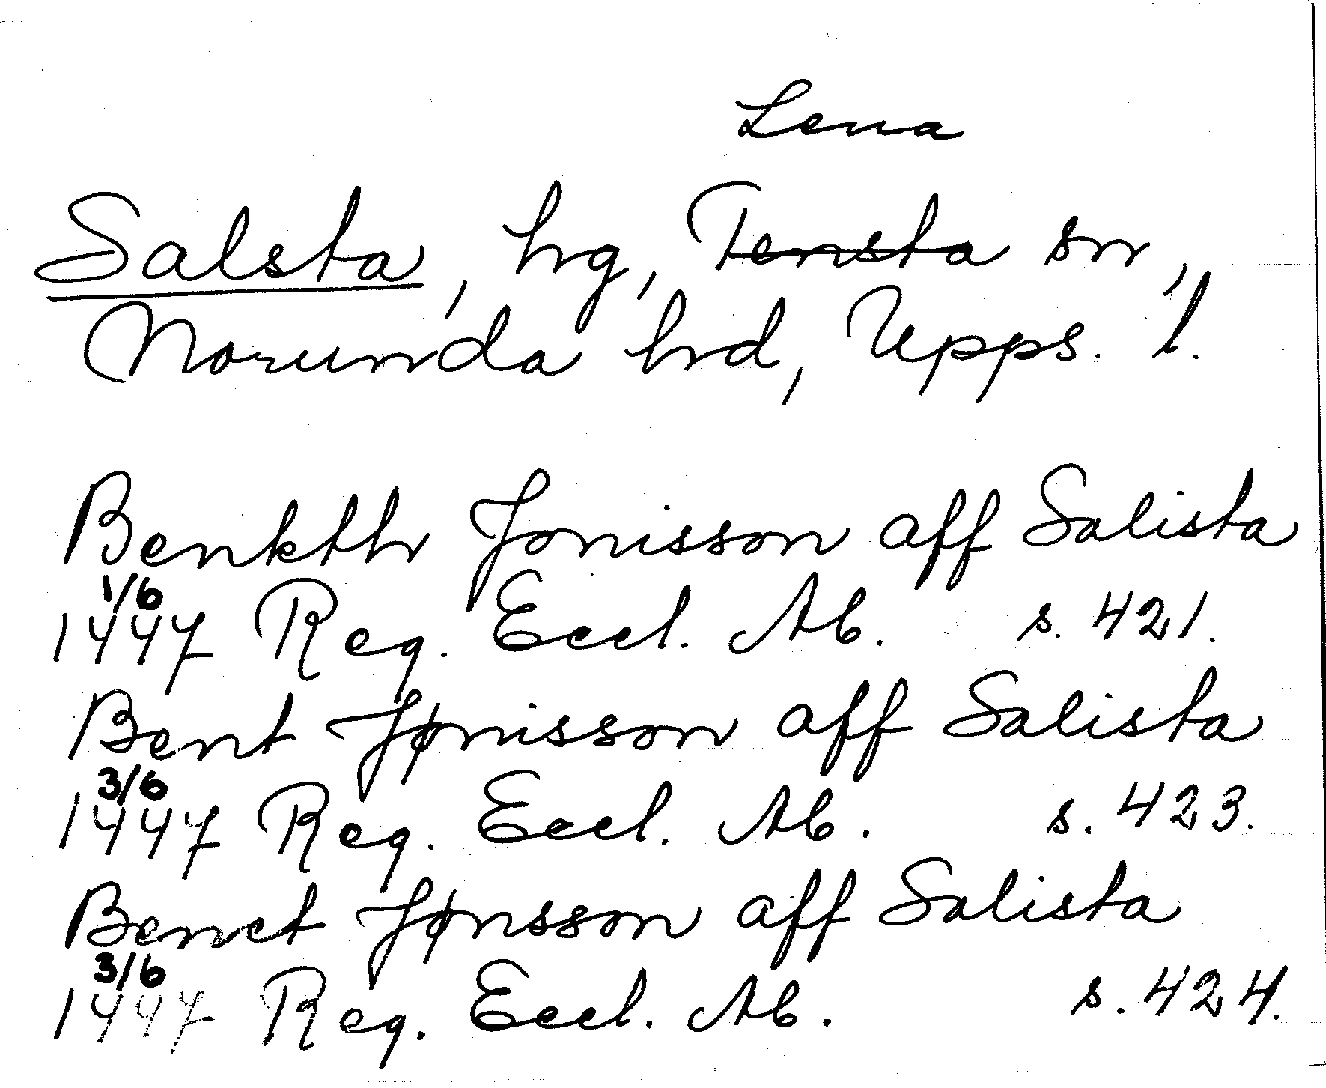 Lena
Salsta, hg, Tensta sn,
Norunda hd, Upps. l.
Benkth Jonisson aff Salista
1/6
1447 Reg. Eccl. Ab. s. 421.
Bent Jønisson aff Salista
3/6
1447 Reg. Eccl. Ab. s. 423.
Benct Jønsson aff Salista
3/6
1447 Reg. Eccl. Ab. s. 424.